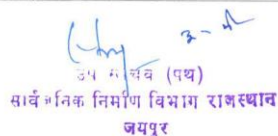 उप सचिव (पथ)
सार्वजनिक निर्माण विभाग राजस्थान
जयपुर